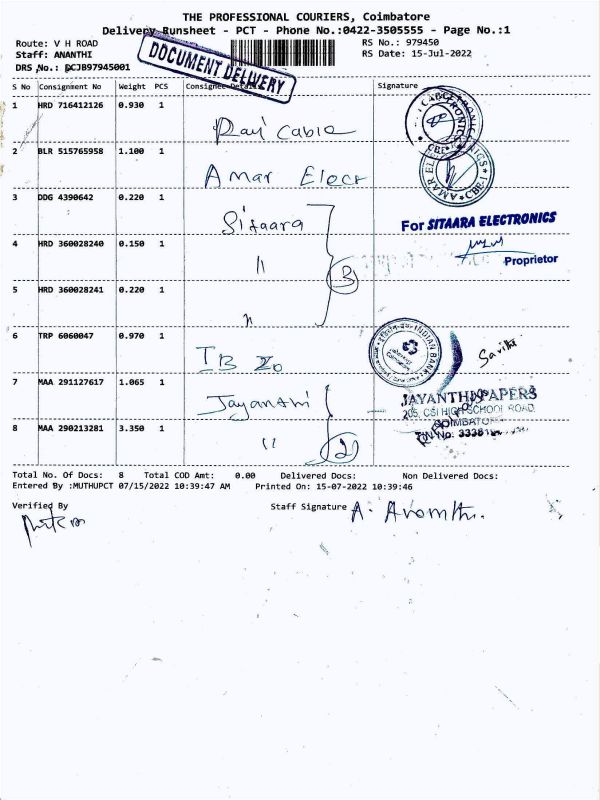 THE PROFESSIONAL COURIERS, Coimbatore
Delivery Runsheet - PCT - Phone No.:0422-3505555 - Page No.:1
Route: V H ROAD RS No.: 979450
Staff: ANANTHI RS Date: 15-Jul-2022
DRS No.: DCJB97945001
DOCUMENT DELIVERY
S No Consignment No Weight PCS Consignee Details Signature
1 HRD 716412126 0.930 1
Ravi Cable
2 BLR 515765958 1.100 1
Amar Elect
3 DDG 4390642 0.220 1
Sitaara
For SITAARA ELECTRONICS
4 HRD 360028240 0.150 1
" 3
Proprietor
5 HRD 360028241 0.220 1
"
6 TRP 6060047 0.970 1
IB Zo
INDIAN BANK
Savithi
7 MAA 291127617 1.065 1
Jayanthi
JAYANTHI PAPERS
205, CSI HIGH SCHOOL ROAD,
COIMBATORE
8 MAA 290213281 3.350 1
" 2
Total No. Of Docs: 8 Total COD Amt: 0.00 Delivered Docs: Non Delivered Docs:
Entered By :MUTHUPCT 07/15/2022 10:39:47 AM Printed On: 15-07-2022 10:39:46
Verified By Staff Signature A. Ananthi.